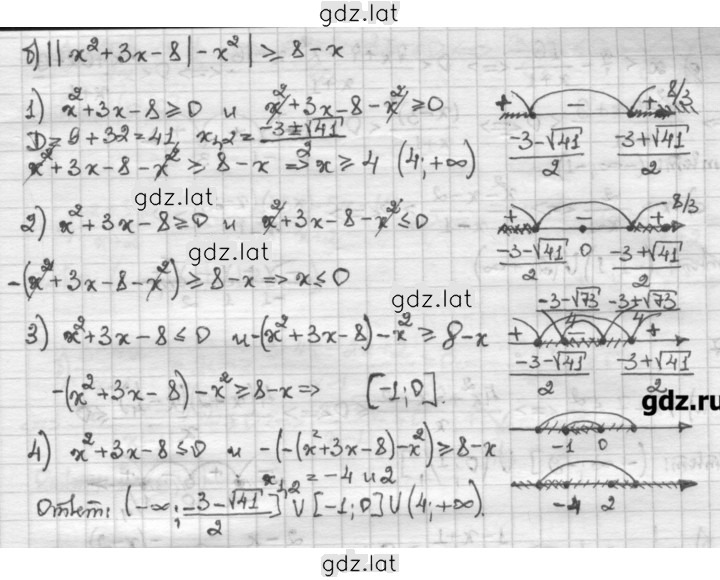 gdz.lat
б) ||x²+3x-8|-x²| ≥ 8-x
1) x²+3x-8 ≥ 0 и x²+3x-8-x² ≥ 0
D = 9+32 = 41, x₁,₂ = (-3±√41)/2
x²+3x-8-x² ≥ 8-x => x ≥ 4 (4; +∞)
+ - + 8/3
(-3-√41)/2 (-3+√41)/2
gdz.lat
2) x²+3x-8 ≥ 0 и x²+3x-8-x² ≤ 0
gdz.lat
-(x²+3x-8-x²) ≥ 8-x => x ≤ 0
+ - 8/3
(-3-√41)/2 0 (-3+√41)/2
gdz.lat
3) x²+3x-8 ≤ 0 и -(x²+3x-8)-x² ≥ 8-x
-(x²+3x-8)-x² ≥ 8-x => [-1; 0].
(-3-√73)/4 (-3+√73)/4
+ - +
(-3-√41)/2 (-3+√41)/2
gdz.ru
-1 0
4) x²+3x-8 ≤ 0 и -(-(x²+3x-8)-x²) ≥ 8-x
x₁,₂ = -4 и 2
-4 2
Ответ: (-∞; (-3-√41)/2] ∪ [-1; 0] ∪ (4; +∞).
gdz.lat